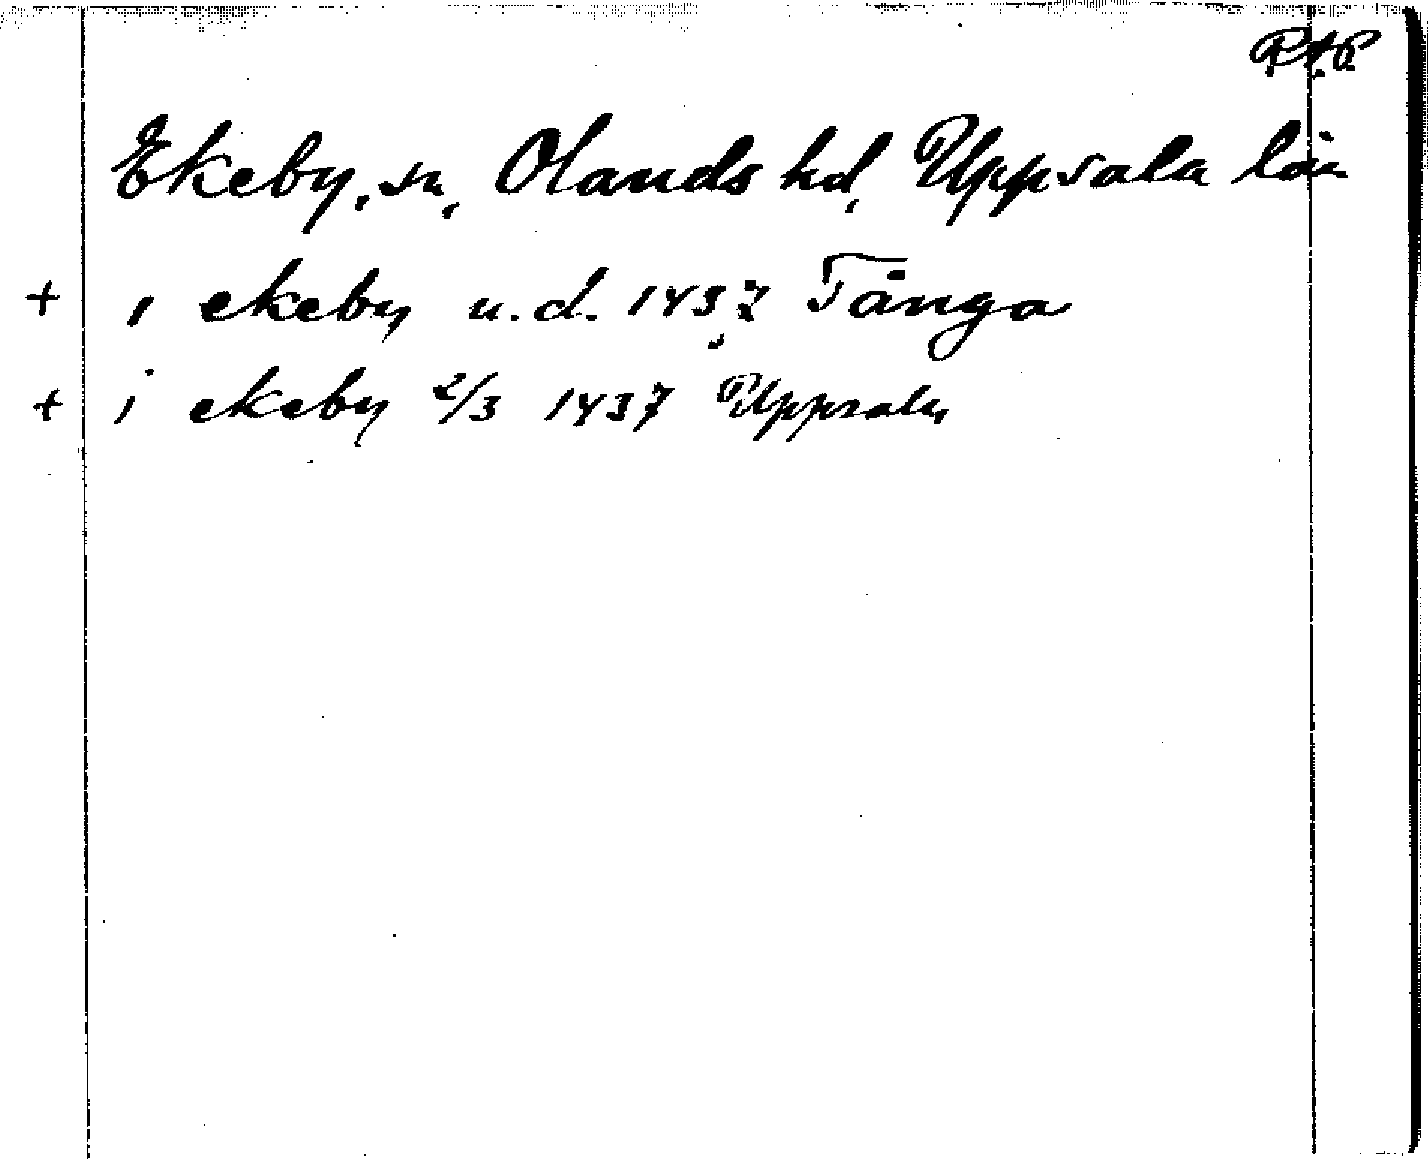 R.A.P.
Ekeby, sn, Olands hd, Uppsala län
+ i ekeby u.d. 1437 Tånga
+ i ekeby 2/3 1437 Uppsala